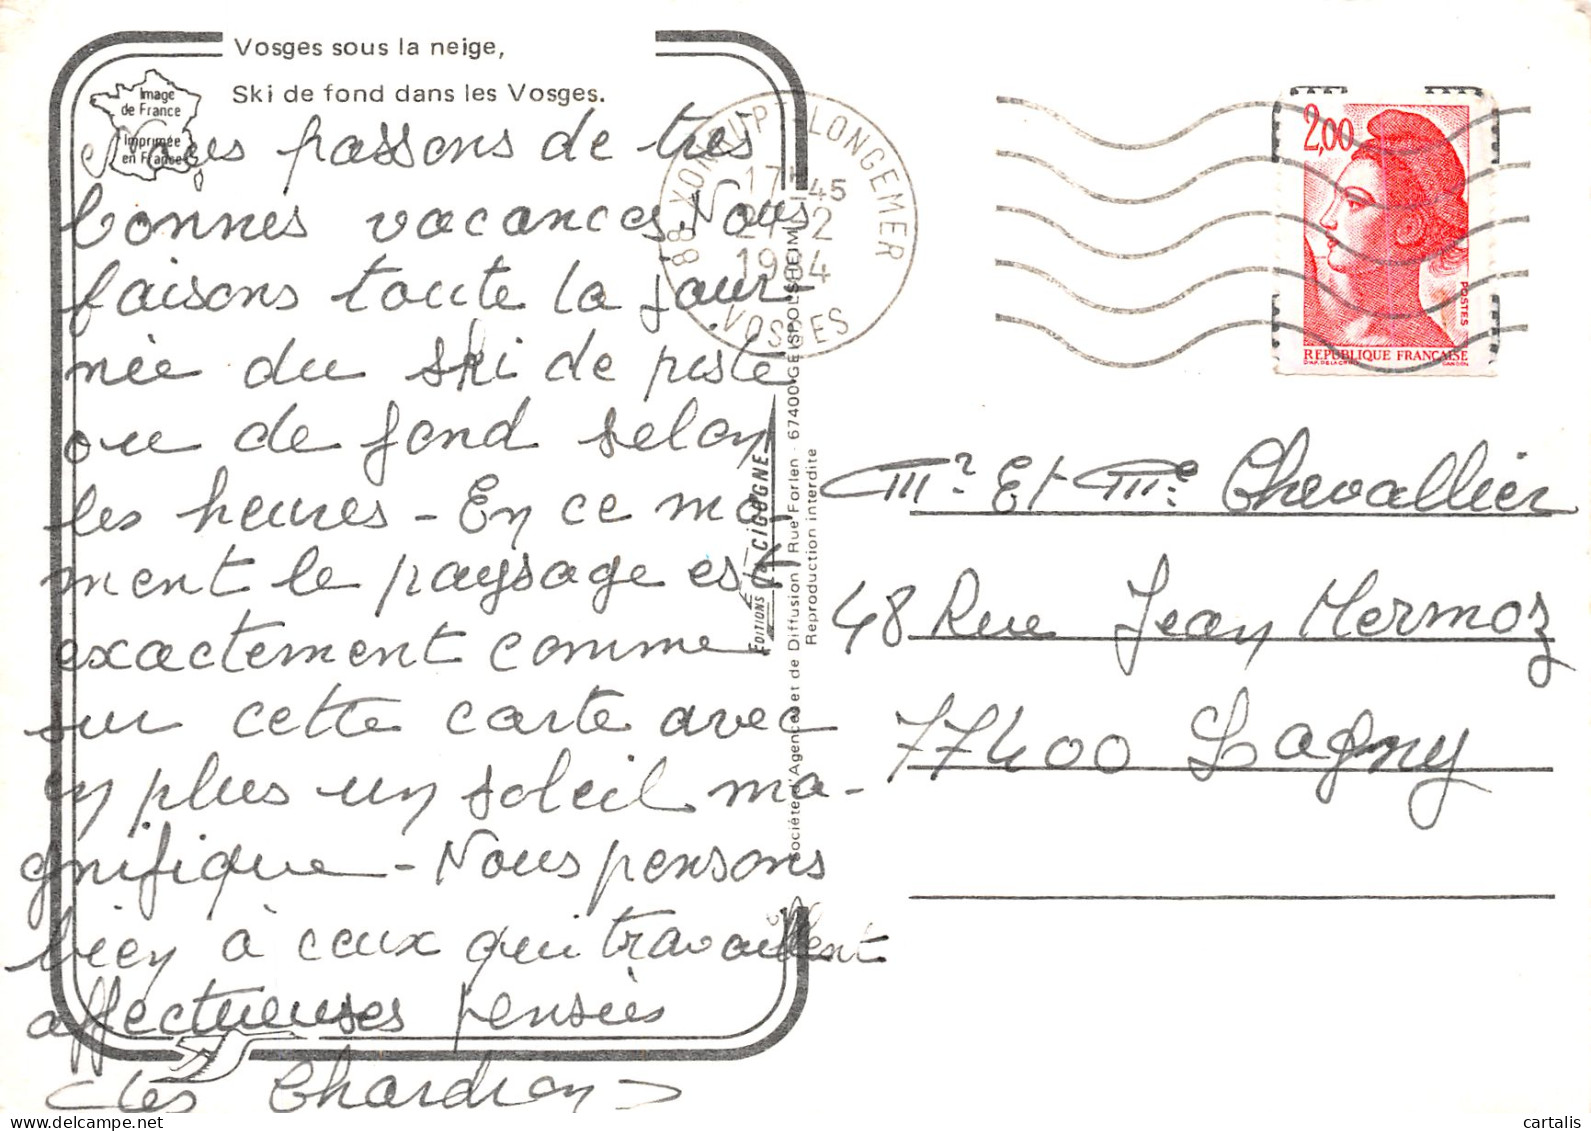 Vosges sous la neige,
Ski de fond dans les Vosges.
Image
de France
Imprimée
en France
Nous passons de très
bonnes vacances. Nous
faisons toute la jour-
née du ski de piste
ou de fond selon
les heures - En ce mo-
ment le paysage est
exactement comme
sur cette carte avec
en plus un soleil ma-
gnifique - Nous pensons
bien à ceux qui travaillent
affectueuses pensées
Les Chardron
88 XONRUPT-LONGEMER
17H45
2
1984
VOSGES
EDITIONS LA CIGOGNE
Société d'Agences et de Diffusion Rue Forlen - 67400 GEISPOLSHEIM
Reproduction interdite
2,00
POSTES
REPUBLIQUE FRANÇAISE
D'AP. DELACROIX GANDON
Mr. Et Mme. Chevallier
48 Rue Jean Mermoz
77400 Lagny
cartalis
www.delcampe.net